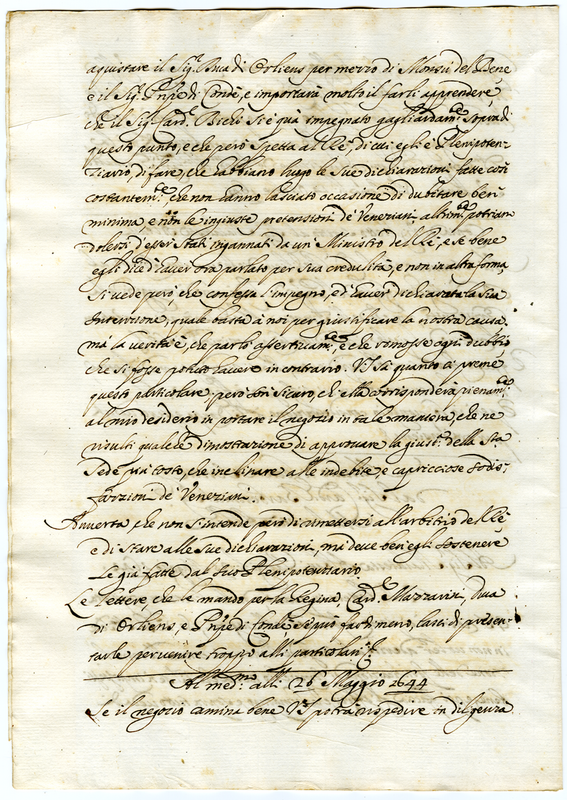 aquistare il Sig.r Duca di Orliens per mezzo di Monsù del Bene
e il Sig.r Pnpe di Condè, e importarà molto il farli apprendere
che il Sig.r Card. Bichi si è quà impegnato gagliardam.te sopra di
questo punto, e che però spetta al Rè, di cui egli è Plenipoten-
ziario di fare, che habbiano luogo le sue dichiarazioni fatte così
costantem.te che non hanno lasciato occasione di dubitare ben
minima, e non le ingiuste pretensioni de Veneziani, altrim.te potriam
dolersi d'esser stati ingannati da un Ministro del Rè, e se bene
egli dice d'haver ora parlato per sua credulità, e non in altra forma,
si vede però che confessa l'impegno, ed haver dichiarata la sua
intenzione, quale basta à noi per giustificare la nostra causa.
ma la verità è, che parlò assertivam.te, e che rimosse ogni dubbio
che si fosse potuto havere in contrario. VS sà quanto ci preme
questo particolare, però son sicuro, ch'ella corrisponderà pienam.te
al mio desiderio in portare il negozio in tale maniera, che ne
risulti qualche dimostrazione di approvare la giust.a della Sta
Sede più tosto, che inclinare alle indebite, e capricciose sodis-
fazzioni de Veneziani.
Avverta che non s'intende però di rimettersi all'arbitrio del Rè
e di stare alle sue dichiarazioni, mà deve ben egli sostenere
le già fatte dal suo Plenipotenziario
Le lettere, che le mando per la Regina, Card. Mazzarini, Duca
di Orliens, e Pnpe di Condè se può far di meno, lasci di presen-
tarle per venire troppo alli particolari
Al med.mo alli 26 Maggio 1644
Se il negozio camina bene VS potrà rispedire in diligenza